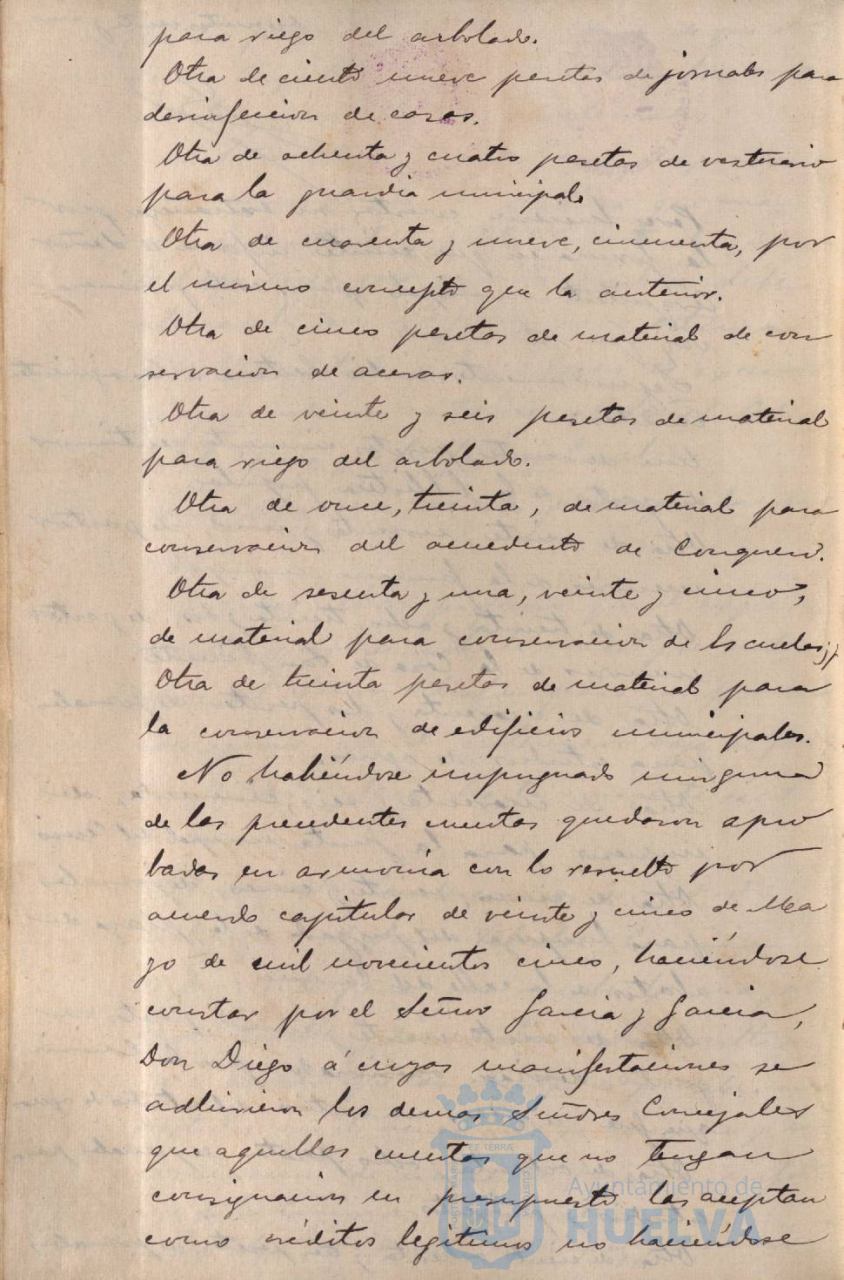 para riego del arbolado.
Otra de ciento nueve pesetas de jornales para
desinfeccion de casas.
Otra de ochenta y cuatro pesetas de vestuario
para la guardia municipal
Otra de cuarenta y nueve, cincuenta, por
el mismo concepto que la anterior.
Otra de cinco pesetas de material de con
servacion de aceras.
Otra de veinte y seis pesetas de material
para riego del arbolado.
Otra de once, treinta, de material para
conservacion del acueducto de Conquero.
Otra de sesenta y una, veinte y cinco,
de material para conservacion de Escuelas; y
Otra de treinta pesetas de material para
la conservacion de edificios municipales.
No habiéndose impugnado ninguna
de las precedentes cuentas quedaron apro
badas en armonia con lo resuelto por
acuerdo capitular de veinte y cinco de Ma
yo de mil novecientos cinco, haciéndose
constar por el Señor Garcia y Garcia,
Don Diego á cuyas manifestaciones se
adhirieron los demas Señores Concejales
que aquellas cuentas que no tengan
consignacion en presupuesto las aceptan
como créditos legitimos no haciéndose
Ayuntamiento de
HUELVA